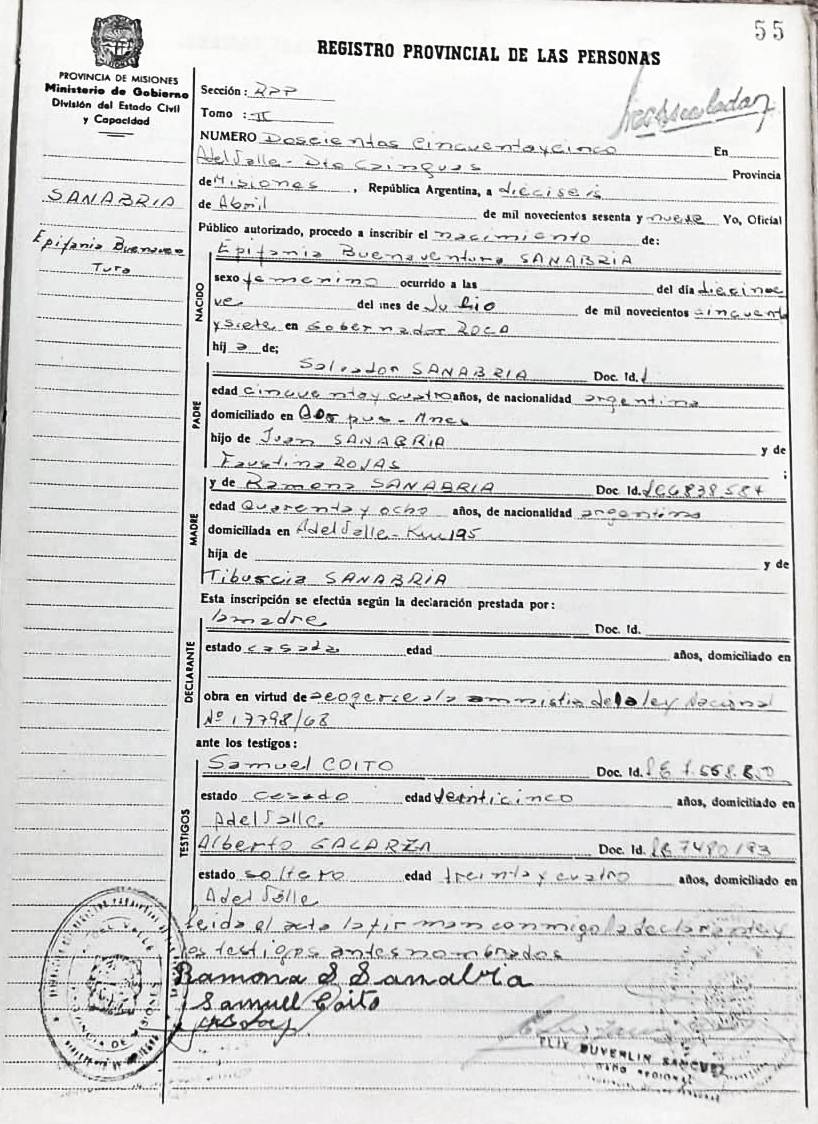 55
REGISTRO PROVINCIAL DE LAS PERSONAS
PROVINCIA DE MISIONES
Ministerio de Gobierno
División del Estado Civil
y Capacidad
SANABRIA
Epifania Buenaven
Tura
Sección: RPP
Tomo : II
NUMERO Doscientos Cincuenta y cinco En
Adel Valle - Dto Cainguas Provincia
de Misiones, República Argentina, a dieciseis
de Abril de mil novecientos sesenta y nueve Yo, Oficial
Público autorizado, procedo a inscribir el nacimiento de:
NACIDO
Epifania Buenaventura SANABRIA
sexo femenino ocurrido a las del día diecinue
ve del mes de Julio de mil novecientos cincuenta
y siete en Gobernador ROCA
hij a de;
PADRE
Salvador SANABRIA Doc. Id.
edad cincuenta y cuatro años, de nacionalidad argentina
domiciliado en Corpus - Mnes
hijo de Juan SANABRIA y de
Faustina ROJAS ;
MADRE
y de Ramona SANABRIA Doc. Id. LC 6838584
edad Quarenta y ocho años, de nacionalidad argentina
domiciliada en Adel Valle - Km 195
hija de y de
Tiburcia SANABRIA
Esta inscripción se efectúa según la declaración prestada por:
DECLARANTE
la madre Doc. Id.
estado casada edad años, domiciliado en
obra en virtud de acogerse a la amnistia de la ley Nacional
Nº 17798/68
ante los testigos:
TESTIGOS
Samuel COITO Doc. Id. LE
estado casado edad veinticinco años, domiciliado en
Adel Valle
Alberto GALARZA Doc. Id. LE 7480193
estado soltero edad treinta y cuatro años, domiciliado en
Adel Valle
Leida el acta la firman conmigo la declarante y
los testigos antes nombrados
Ramona S Sanabria
Samuel Coito